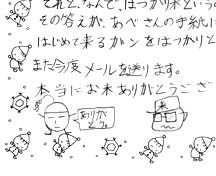 それと、なんで、はっかり木という
その答えが、あべさんの手紙に
はじめて来るガンをはつかりと
また今度メールを送ります。
本当にお米ありがとうござ
ありがとう。
米